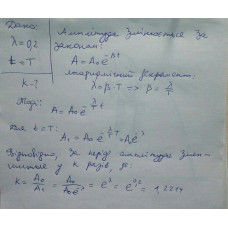 Дано:
λ=0,2
t=T
k-?
Амплітуда змінюється за
законом:
A=A₀e^(-βt)
логарифмічний декремент:
λ=β·T ⇒ β=λ/T
Тоді: A=A₀e^(-λ/T t)
для t=T:
A₁=A₀e^(-λ/T T)=A₀e^(-λ)
Відповідно, за період амплітуда змен-
шиться у k разів, де:
k=A₀/A₁=A₀/(A₀e^(-λ))=e^λ=e^0,2=1,2214